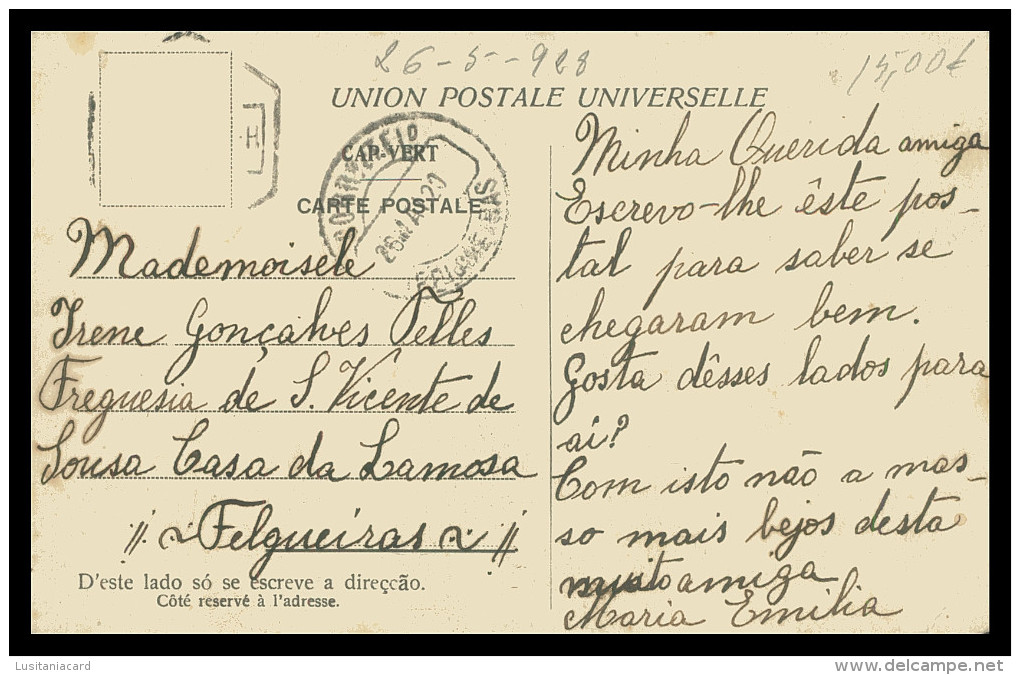 26-5-928
15,00€
UNION POSTALE UNIVERSELLE
CAP-VERT
CARTE POSTALE
Mademoisele
Irene Gonçalves Telles
Freguesia de S. Vicente de
Sousa Casa da Lamosa
Felgueiras
D'este lado só se escreve a direcção.
Côté reservé à l'adresse.
Minha Querida amiga
Escrevo-lhe êste pos-
tal para saber se
chegaram bem.
Gosta dêsses lados para
ai?
Com isto não a mas-
so mais bejos desta
muito amiga
Maria Emilia
Lusitaniacard
www.delcampe.net